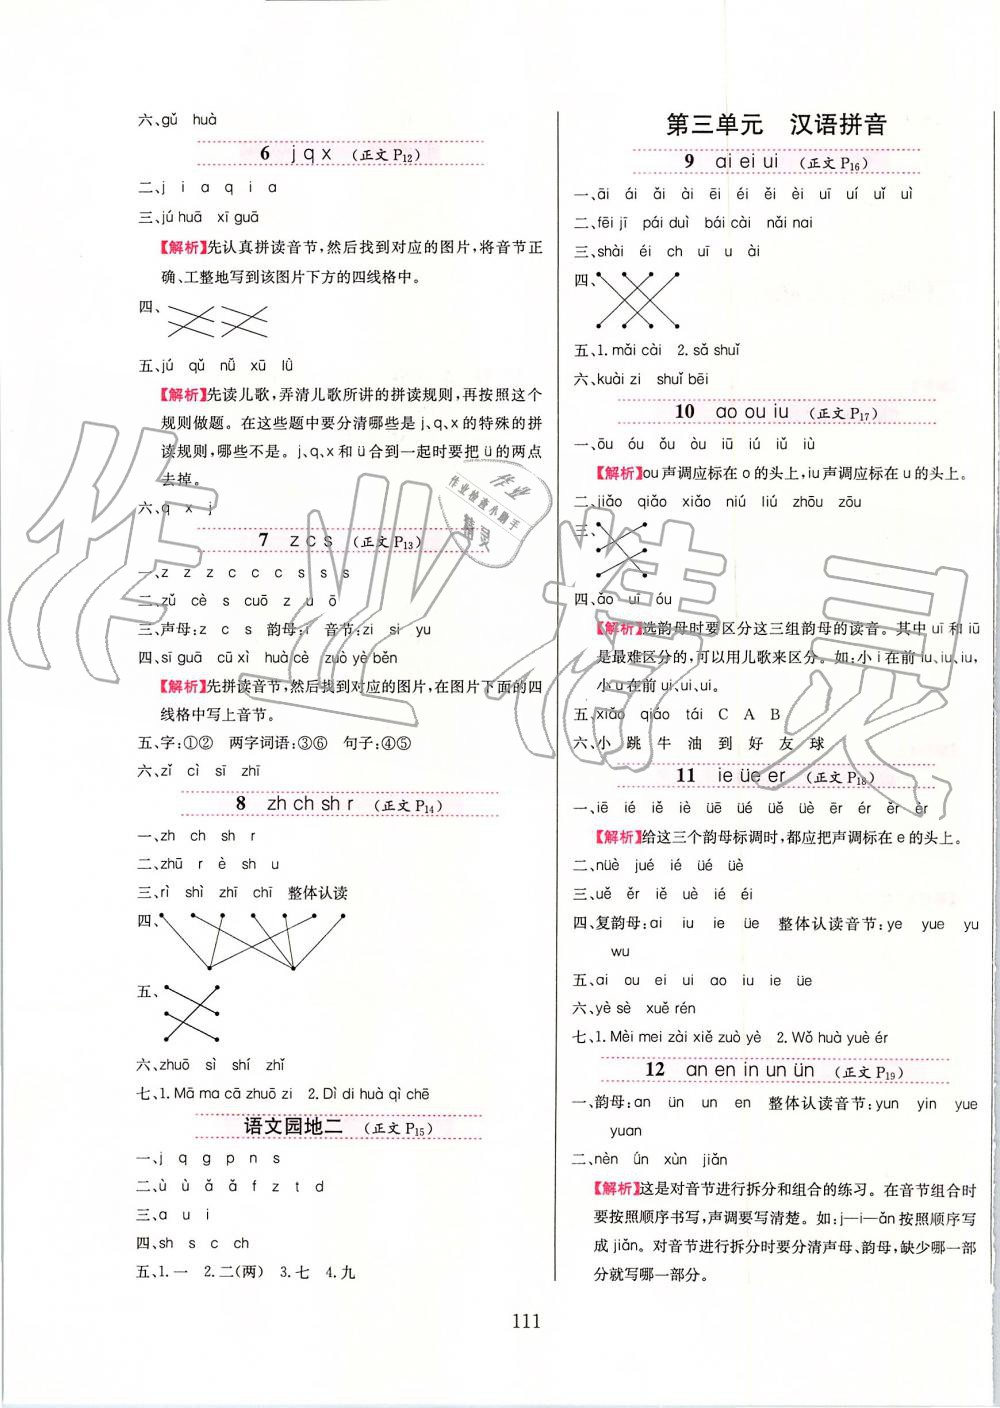 六、gǔ huà
6 j q x (正文 P12)
二、j i a q i a
三、jú huā xī guā
【解析】先认真拼读音节,然后找到对应的图片,将音节正
确、工整地写到该图片下方的四线格中。
四、
五、jú qǔ nǚ xū lǜ
【解析】先读儿歌,弄清儿歌所讲的拼读规则,再按照这个
规则做题。在这些题中要分清哪些是 j、q、x 的特殊的拼
读规则,哪些不是。j、q、x 和 ü 合到一起时要把 ü 的两点
去掉。
六、q x j
7 z c s (正文 P13)
一、z z z c c c s s s
二、zǔ cè s cuō z u ō
三、声母:z c s 韵母:i 音节:zi si yu
四、sī guā cū xì huà cè zuò yè běn
【解析】先拼读音节,然后找到对应的图片,在图片下面的四
线格中写上音节。
五、字:①② 两字词语:③⑥ 句子:④⑤
六、zǐ cì sī zhī
8 zh ch sh r (正文 P14)
一、zh ch sh r
二、zhū r è sh u
三、rì shì zhī chī 整体认读
四、
五、
六、zhuō sì shí zhǐ
七、1. Mā ma cā zhuō zi 2. Dì di huà qì chē
语文园地二 (正文 P15)
一、j q g p n s
二、ù ù ǎ ǎ f z t d
三、a u i
四、sh s c ch
五、1. 一 2. 二(两) 3. 七 4. 九
第三单元 汉语拼音
9 ai ei ui (正文 P16)
一、āi ái ǎi ài ēi éi ěi èi uī uí uǐ uì
二、fēi jī pái duì bái cài nǎi nai
三、shài éi ch uī u ài
四、
五、1. mǎi cài 2. sǎ shuǐ
六、kuài zi shuǐ bēi
10 ao ou iu (正文 P17)
一、ōu óu ǒu òu iū iú iǔ iù
【解析】ou 声调应标在 o 的头上,iu 声调应标在 u 的头上。
二、jiǎo qiǎo xiǎo niú liú zhōu zōu
三、
四、ǎo uǐ óu
【解析】选韵母时要区分这三组韵母的读音。其中 uī 和 iū
是最难区分的,可以用儿歌来区分。如:小 i 在前 iu、iu、iu,
小 u 在前 ui、ui、ui。
五、xiǎo qiáo tái C A B
六、小 跳 牛 油 到 好 友 球
11 ie üe er (正文 P18)
一、iē ié iě iè üē üé üě üè ēr ér ěr èr
【解析】给这三个韵母标调时,都应把声调标在 e 的头上。
二、nüè jué ié üé üè
三、uě ěr iě uè iè éi
四、复韵母:ai iu ie üe 整体认读音节:ye yue yu
wu
五、ai ou ei ui ao iu ie üe
六、yè sè xuě rén
七、1. Mèi mei zài xiě zuò yè 2. Wǒ huà yuè ér
12 an en in un ün (正文 P19)
一、韵母:an ün un en 整体认读音节:yun yin yue
yuan
二、nèn ǘn xùn jiǎn
【解析】这是对音节进行拆分和组合的练习。在音节组合时
要按照顺序书写,声调要写清楚。如:j—i—ǎn 按照顺序写
成 jiǎn。对音节进行拆分时要分清声母、韵母,缺少哪一部
分就写哪一部分。
111
作业精灵
作业
作业检查小助手
精灵